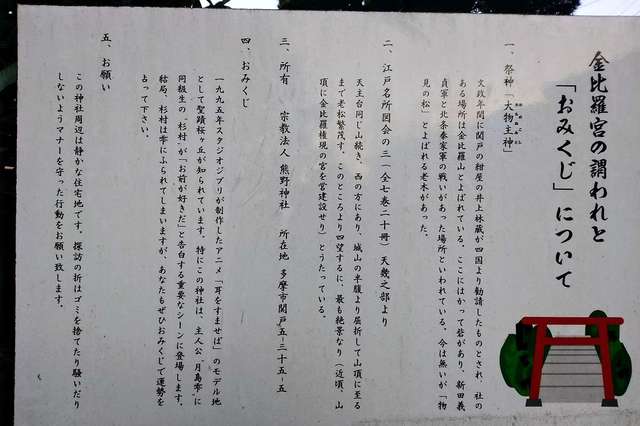 金比羅宮の謂われと
「おみくじ」について
一、祭神「大物主神」
文政年間に関戸の紺屋の井上林蔵が四国より勧請したものとされ、社の
ある場所は金比羅山とよばれている。ここにはかつて砦があり、新田義
貞軍と北条泰家軍の戦いがあった場所といわれている。今は無いが「物
見の松」とよばれる老木があった。
二、江戸名所図会の三（全七巻二十冊）天璣之部より
天主台同じ山続き、西の方にあり、城山の半腹より屈折して山頂に至る
まで老松繁茂す。このところより四望するに、最も絶景なり（近頃、山
頂に金比羅権現の宮を営建設せり）とうたっている。
三、所有　宗教法人　熊野神社　所在地　多摩市関戸五－三十五－五
四、おみくじ
一九九五年スタジオジブリが制作したアニメ「耳をすませば」のモデル地
として聖蹟桜ヶ丘が知られています。特にこの神社は、主人公「月島雫」に
同級生の「杉村」が「お前が好きだ」と告白する重要なシーンに登場します。
結局、杉村は雫にふられてしまいますが、あなたもぜひおみくじで運勢を
占って下さい。
五、お願い
この神社周辺は静かな住宅地です。探訪の折はゴミを捨てたり騒いだり
しないようマナーを守った行動をお願い致します。